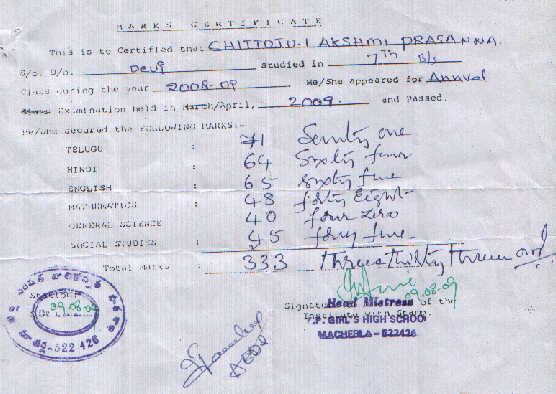 MARKS CERTIFICATE
This is to Certified that CHITTOJU. LAKSHMI PRASANNA.
S/o. D/o. Devij studied in 7Th
Class during the year 2008-09 He/She appeared for Annual
Examination held in March/April, 2009. and Passed.
He/She secured the FOLLOWING MARKS:-
TELUGU : 71 Seventy one
HINDI : 64 Sixty four
ENGLISH : 65 sixty five
MATHEMATICS : 48 forty Eight
GENERAL SCIENCE : 40 four zero
SOCIAL STUDIES : 45 forty five
Total Marks : 333 three thirty three only
Station:
09.08.09
09.08.09
Signature of the
Head Mistress
Institute With Stamp.
GIRL'S HIGH SCHOOL
MACHERLA - 522426
522 426